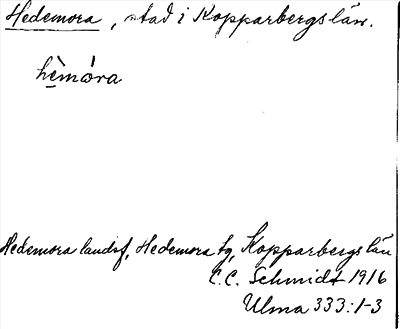 Hedemora, stad i Kopparbergs län.
hèmóra
Hedemora landsf, Hedemora tg, Kopparbergs län
C.C. Schmidt 1916
Ulma 333:1-3